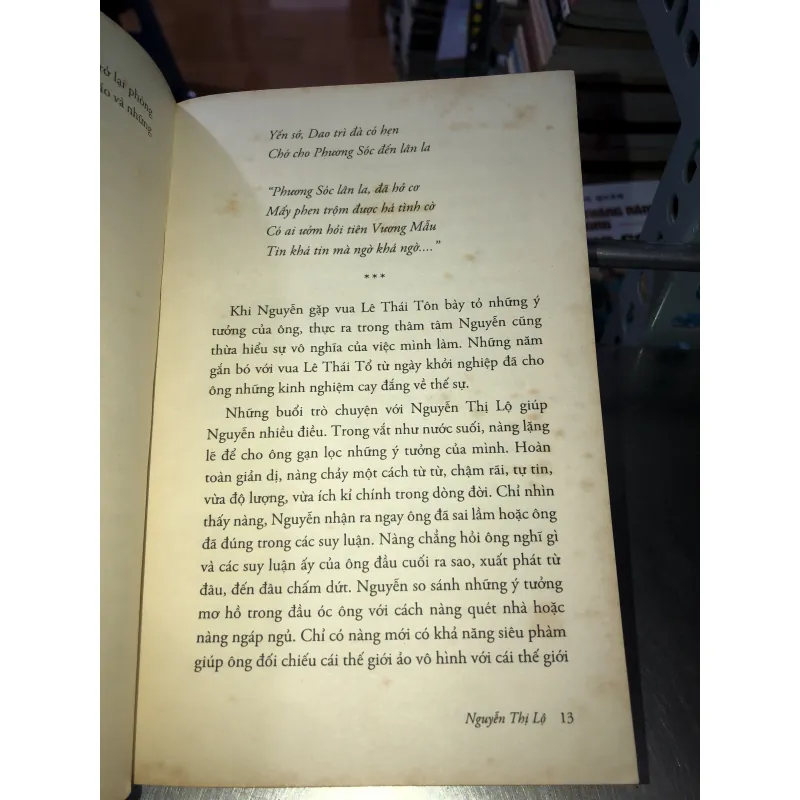 rở lại phòng
áo và những
Yến sở, Dao trì đà có hẹn
Chớ cho Phương Sóc đến lân la
“Phương Sóc lân la, đã hở cơ
Mấy phen trộm được hả tình cờ
Có ai ướm hỏi tiên Vương Mẫu
Tin khả tin mà ngờ khả ngờ....”
***
Khi Nguyễn gặp vua Lê Thái Tôn bày tỏ những ý
tưởng của ông, thực ra trong thâm tâm Nguyễn cũng
thừa hiểu sự vô nghĩa của việc mình làm. Những năm
gắn bó với vua Lê Thái Tổ từ ngày khởi nghiệp đã cho
ông những kinh nghiệm cay đắng về thế sự.
Những buổi trò chuyện với Nguyễn Thị Lộ giúp
Nguyễn nhiều điều. Trong vắt như nước suối, nàng lặng
lẽ để cho ông gạn lọc những ý tưởng của mình. Hoàn
toàn giản dị, nàng chảy một cách từ từ, chậm rãi, tự tin,
vừa độ lượng, vừa ích kỉ chính trong dòng đời. Chỉ nhìn
thấy nàng, Nguyễn nhận ra ngay ông đã sai lầm hoặc ông
đã đúng trong các suy luận. Nàng chẳng hỏi ông nghĩ gì
và các suy luận ấy của ông đầu cuối ra sao, xuất phát từ
đâu, đến đâu chấm dứt. Nguyễn so sánh những ý tưởng
mơ hồ trong đầu óc ông với cách nàng quét nhà hoặc
nàng ngáp ngủ. Chỉ có nàng mới có khả năng siêu phàm
giúp ông đối chiếu cái thế giới ảo vô hình với cái thế giới
Nguyễn Thị Lộ 13